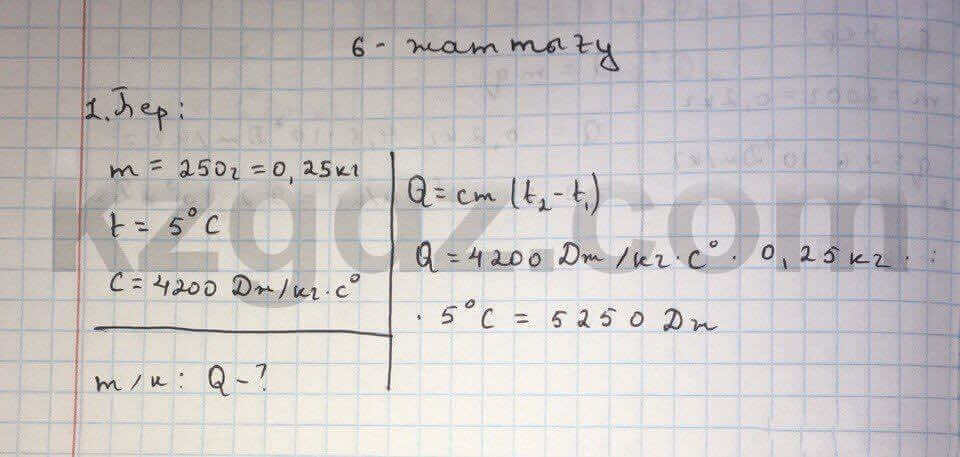 6 - жаттығу
1. Бер:
m = 250г = 0,25кг
t = 5°C
C = 4200 Дж/кг·c°
m/к: Q - ?
Q = cm (t₂ - t₁)
Q = 4200 Дж/кг·c° · 0,25кг ·
· 5°C = 5250 Дж
kzgdz.com